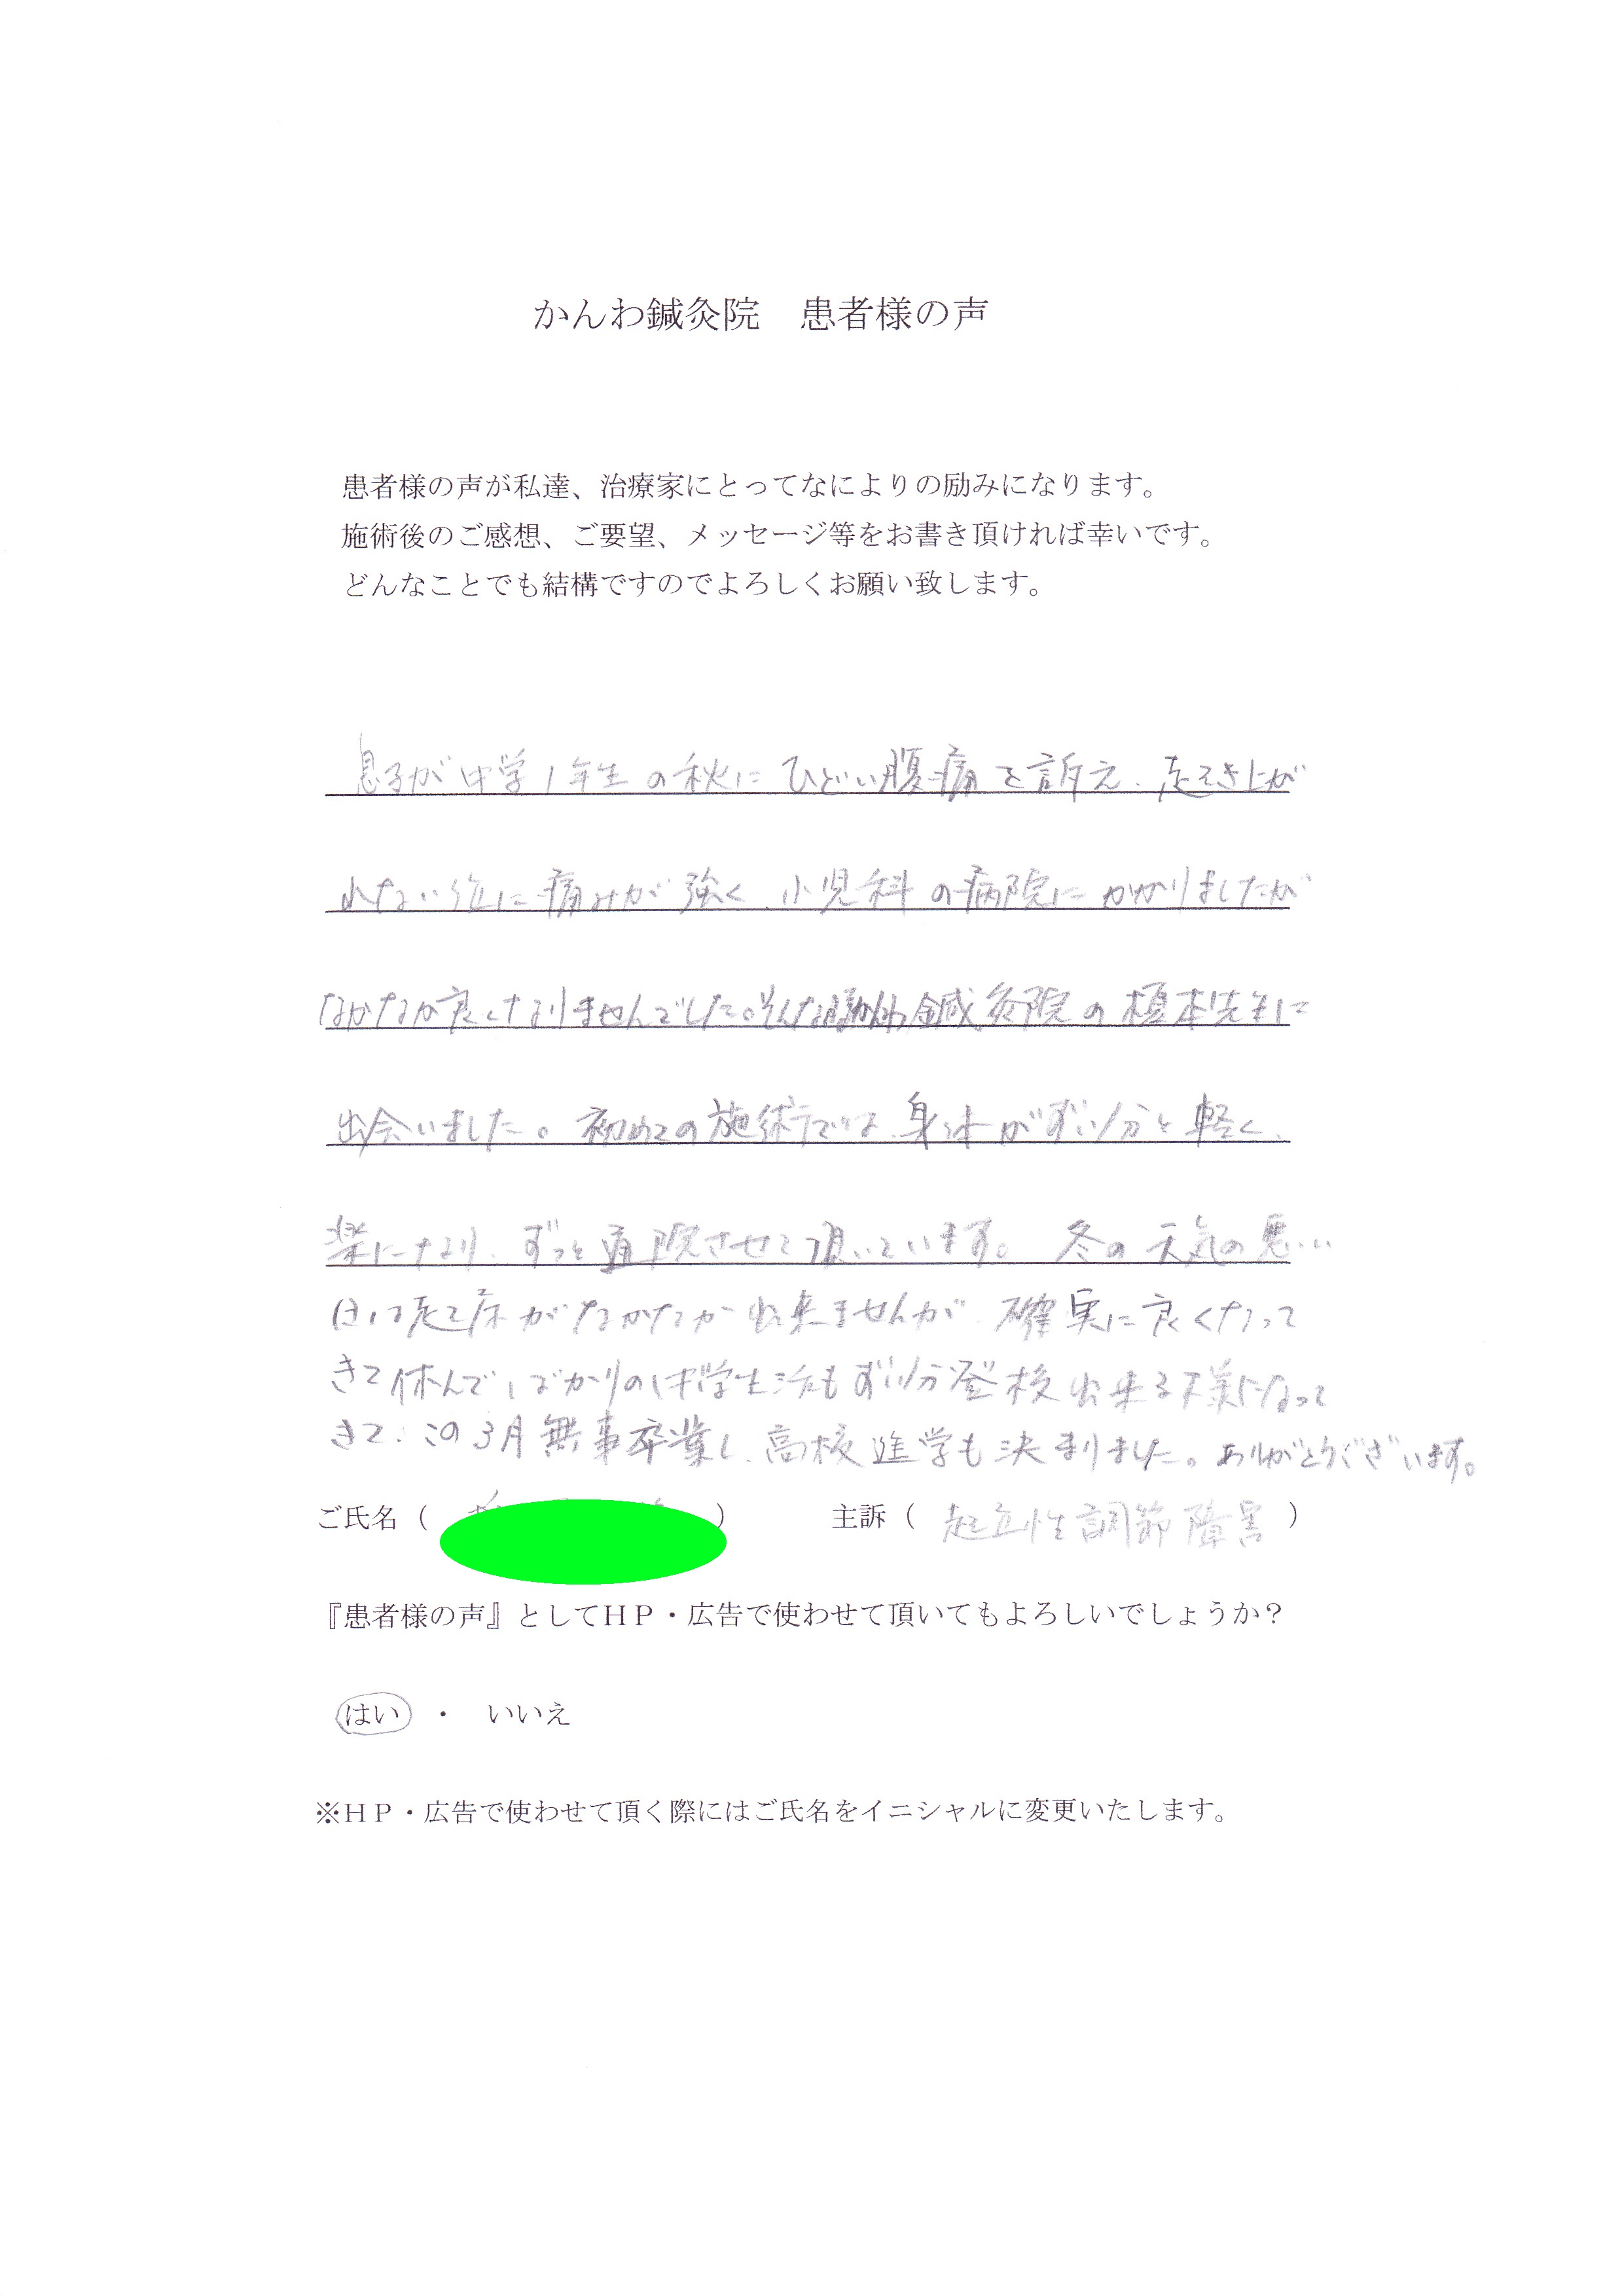 かんわ鍼灸院　患者様の声
患者様の声が私達、治療家にとってなによりの励みになります。
施術後のご感想、ご要望、メッセージ等をお書き頂ければ幸いです。
どんなことでも結構ですのでよろしくお願い致します。
息子が中学1年生の秋にひどい腹痛を訴え、起き上が
れない位に痛みが強く、小児科の病院にかかりましたが
なかなか良くなりませんでした。そんな時かんわ鍼灸院の榎本先生に
出会いました。初めての施術では、身体がずい分と軽く、
楽になり、ずっと通院させて頂いています。冬の天気の悪い
日は起床がなかなか出来ませんが、確実に良くなって
きて休んでばかりの中学生活もずい分登校出来る様になって
きて、この3月無事卒業し、高校進学も決まりました。ありがとうございます。
ご氏名（　　　）　主訴（起立性調節障害）
『患者様の声』としてＨＰ・広告で使わせて頂いてもよろしいでしょうか？
はい　・　いいえ
※ＨＰ・広告で使わせて頂く際にはご氏名をイニシャルに変更いたします。